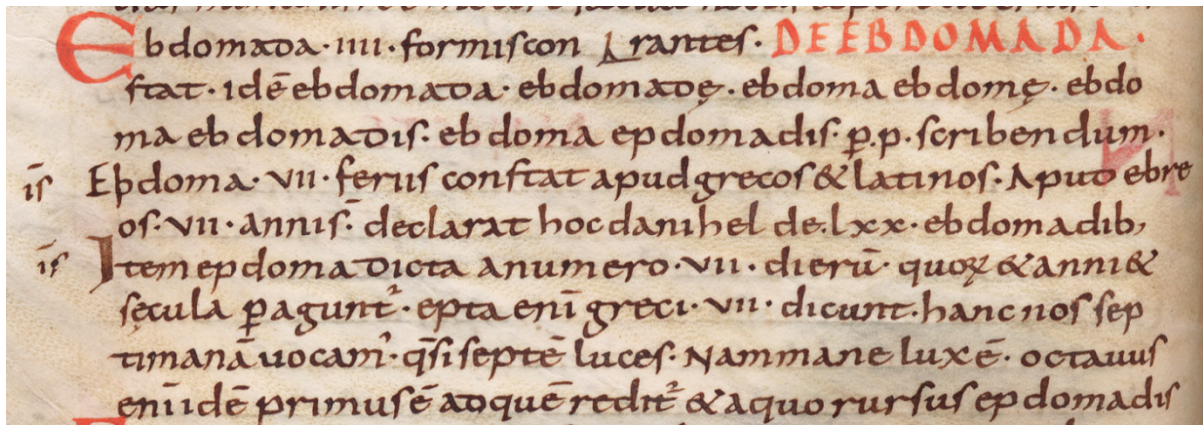 Ebdomada · IIII · formis con rantes · DE EBDOMADA ·
stat · idē ebdomada · ebdomadę · ebdoma ebdomę · ebdo
ma ebdomadis · ebdoma epdomadis · p̄.p. scribendum ·
īs Epdoma · VII · feriis constat apud grecos & latinos · Aput ebre
os · VII · annis · declarat hoc danihel de · lxx · ebdomadib,
īs Item epdoma dicta a numero · VII · dierū · quoꝝ & anni &
sęcula ꝑagunt᷑ · epta enī greci · VII · dicunt · hanc nos sep
timanā uocam᾽ · q̄si septē luces · Nam mane lux ē · octauus
enī idē primus ē ad quē redit᷑ & a quo rursus epdomadis